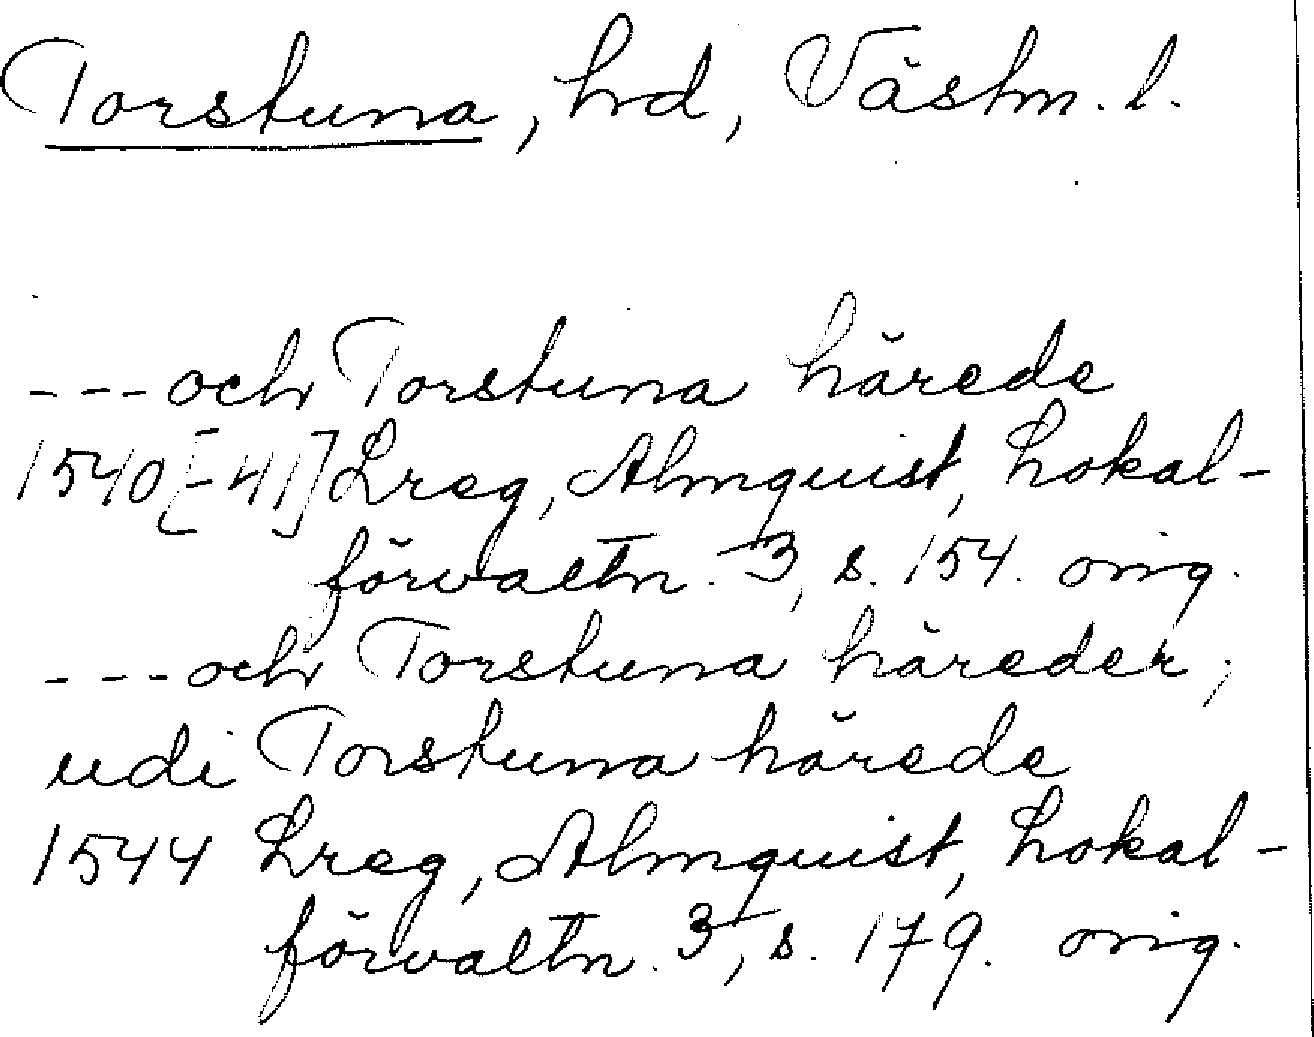 Torstuna, hd, Västm. l.
--- och Torstuna härede
1540[-41] Lreg, Almquist, Lokal-
förvaltn. 3, s. 154. orig.
--- och Torstuna häreder;
udi Torstuna härede
1544 Lreg, Almquist, Lokal-
förvaltn. 3, s. 179. orig.